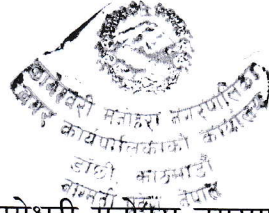 कागेश्वरी मनोहरा नगरपालिका
नगर कार्यपालिकाको कार्यालय
डाँछी काठमाडौँ
बागमती प्रदेश नेपाल